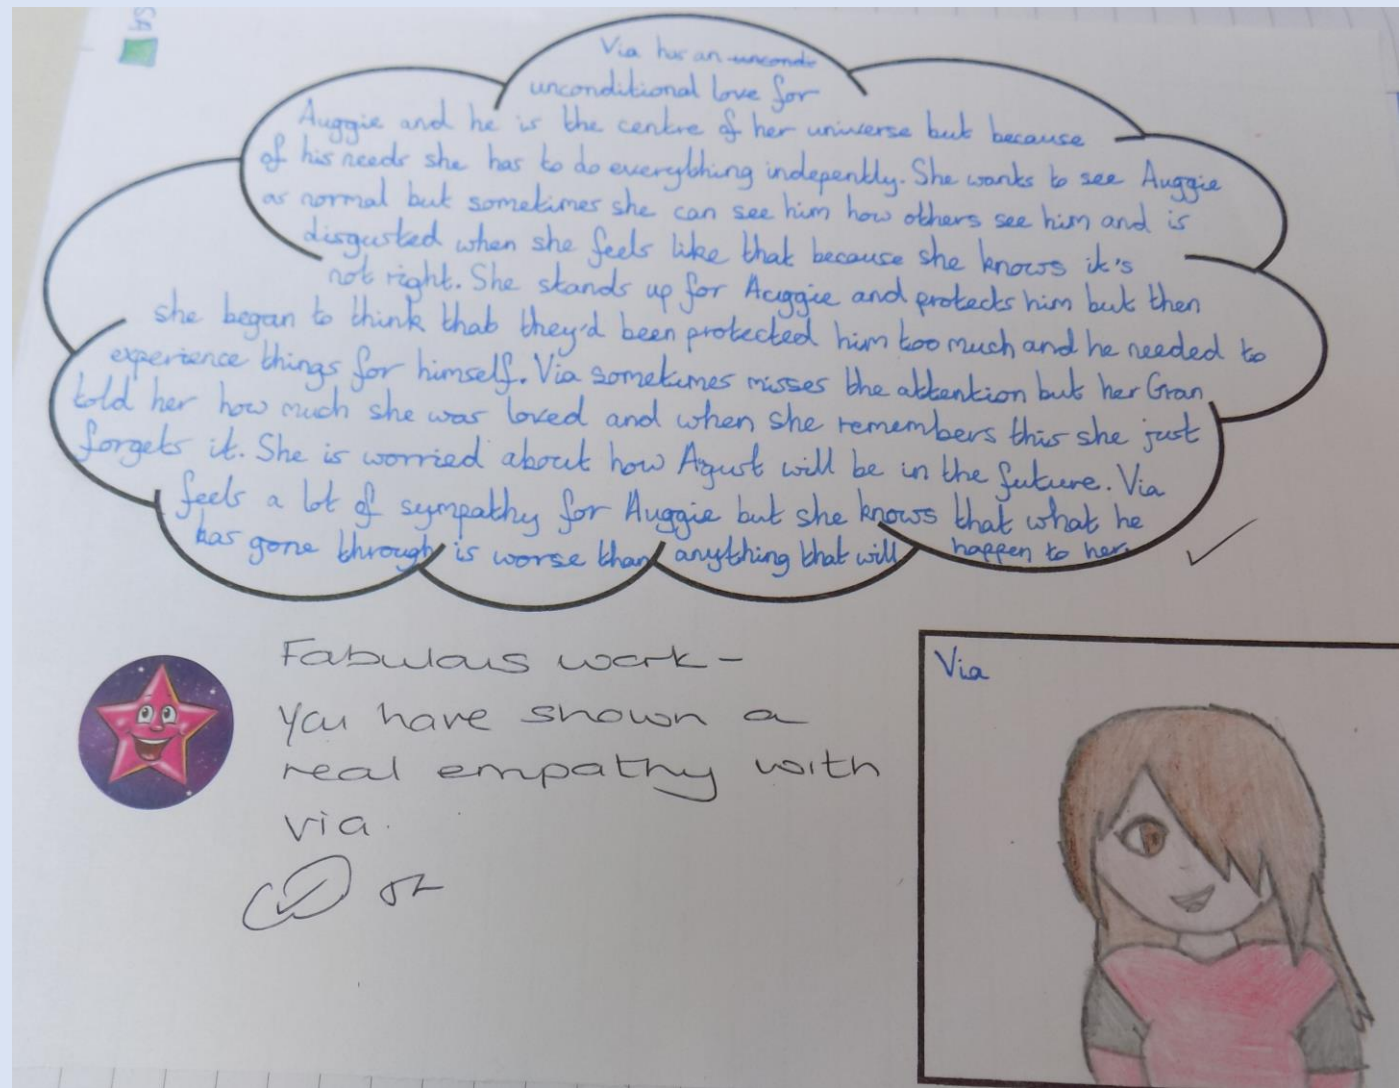 SA
Via has an uncondi
unconditional love for
Auggie and he is the centre of her universe but because
of his needs she has to do everything indepently. She wants to see Auggie
as normal but sometimes she can see him how others see him and is
disgusted when she feels like that because she knows it's
not right. She stands up for Auggie and protects him but then
she began to think that they'd been protected him too much and he needed to
experience things for himself. Via sometimes misses the attention but her Gran
told her how much she was loved and when she remembers this she just
forgets it. She is worried about how Agust will be in the future. Via
feels a lot of sympathy for Auggie but she knows that what he
has gone through is worse than anything that will happen to her.
Fabulous work -
you have shown a
real empathy with
via.
Via